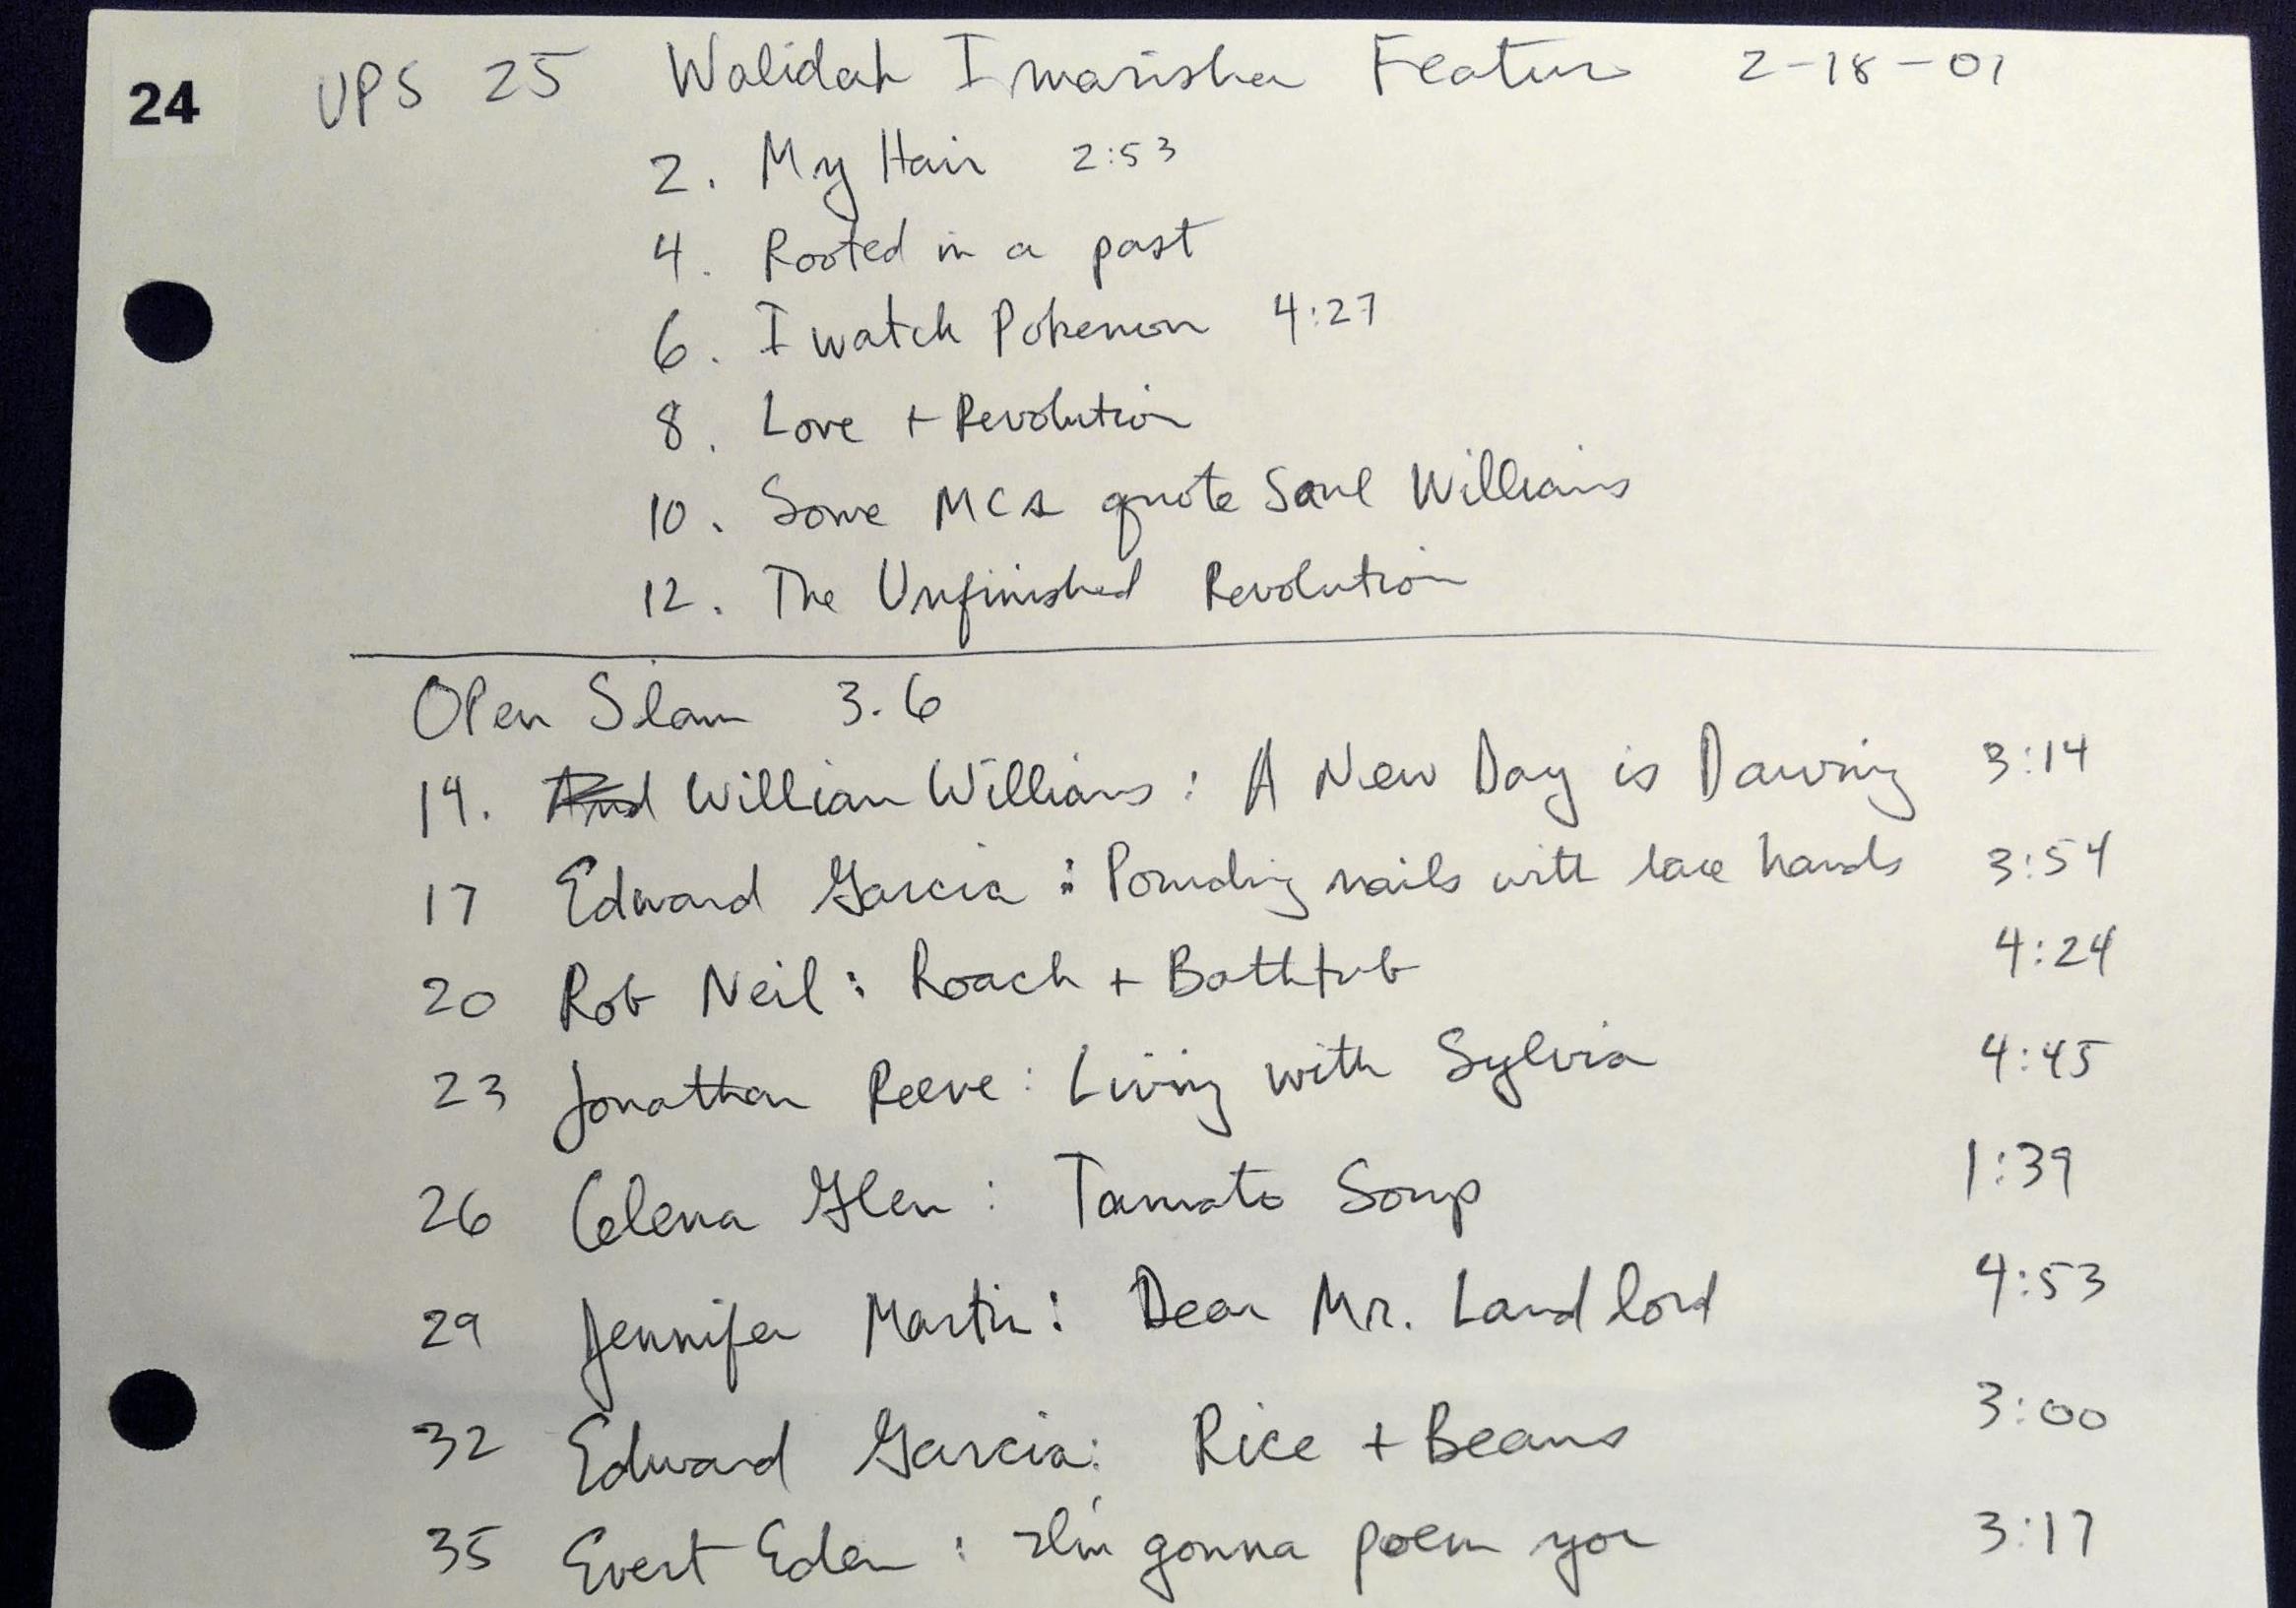 24 UPS 25 Walidah Imarisha Feature 2-18-01
2. My Hair 2:53
4. Rooted in a past
6. I watch Pokemon 4:27
8. Love + Revolution
10. Some MCs quote Saul Williams
12. The Unfinished Revolution
Open Slam 3.6
14. William Williams: A New Day is Dawning 3:14
17 Edward Garcia: Pounding nails with hands 3:54
20 Rob Neil: Roach + Bathtub 4:24
23 Jonathan Reeve: Living with Sylvia 4:45
26 Celena Glen: Tomato Soup 1:39
29 Jennifer Martin: Dear Mr. Landlord 4:53
32 Edward Garcia: Rice + Beans 3:00
35 Evert Eden: I'm gonna poem you 3:17